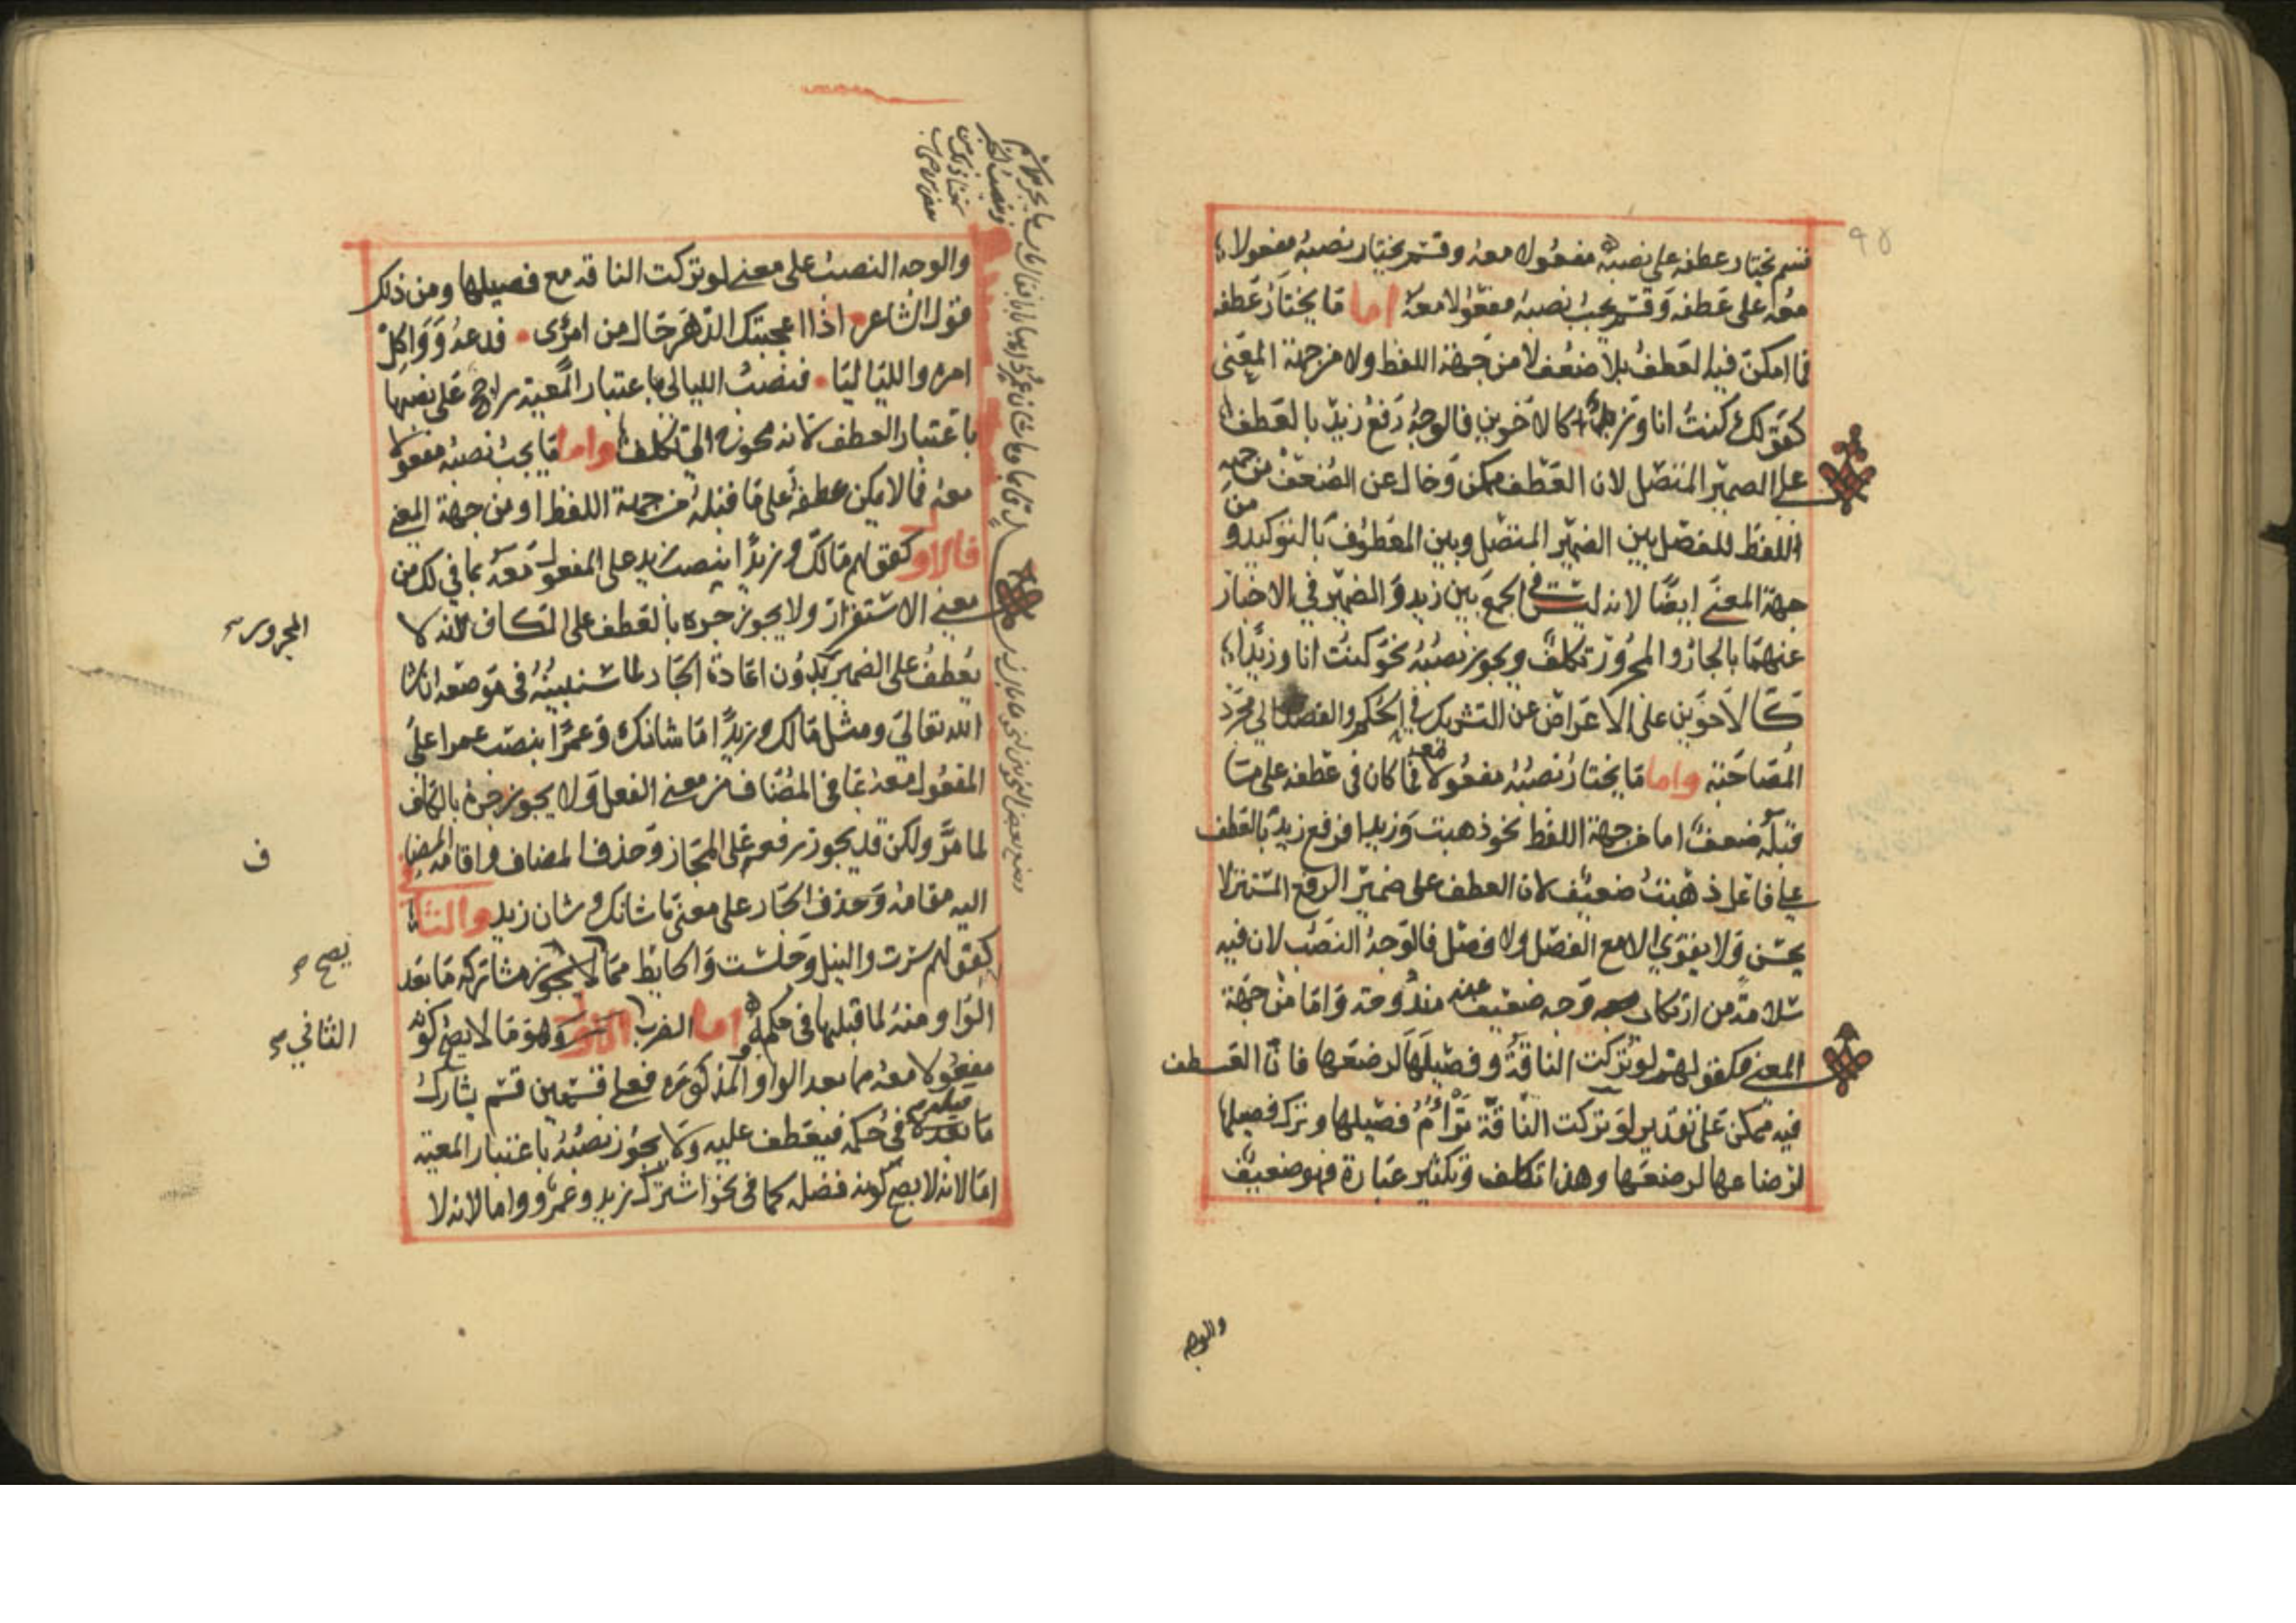 قسم يختار عطفه على نصبه مفعولا معه وقسم يختار نصبه مفعولا
معه على عطفه وقسم يجب نصبه مفعولا معه اما ما يختار عطفه
فما امكن فيه العطف بلا ضعف لا من جهة اللفظ ولا من جهة المعنى
كقولك كنت انا وزيد كالاخوين فالوجه رفع زيد بالعطف
على الضمير المتصل لان العطف ممكن وخال عن الضعف من جهة
اللفظ للفصل بين الضمير المتصل وبين المعطوف بالتوكيد ومن
جهة المعنى ايضا لانه ليس في الجمع بين زيد والضمير في الاخبار
عنهما بالجار والمجرور تكلف ويجوز نصبه نحو كنت انا وزيدا
كالاخوين على الاعراض عن التشريك في الحكم والقصد الى مجرد
المصاحبة واما ما يختار نصبه مفعولا معه فما كان في عطفه على ما
قبله ضعف اما من جهة اللفظ نحو ذهبت وزيدا فرفع زيد بالعطف
على فاعل ذهبت ضعيف لان العطف على ضمير الرفع المتصل لا
يحسن ولا يقوى الا مع الفصل ولا فصل فالوجه النصب لان فيه
سلامة من ارتكاب وجه ضعيف عنه مندوحة واما من جهة
المعنى فكقولهم لو تركت الناقة وفصيلها لرضعها فان العطف
فيه ممكن على تقدير لو تركت الناقة ترأم فصيلها وترك فصيلها
لرضاعها لرضعها وهذا تكلف وتكثير عبارة فهو ضعيف
والوجه
والوجه النصب على معنى لو تركت الناقة مع فصيلها ومن ذلك
قول الشاعر اذا اعجبتك الدهر حال من امرى فدعه وواكل
امره واللياليا فنصب الليالي باعتبار المعية راجح على نصبها
باعتبار العطف لانه محوج الى تكلف واما ما يجب نصبه مفعولا
معه فما لا يمكن عطفه على ما قبله من جهة اللفظ او من جهة المعنى
فالاول كقولهم مالك وزيدا ينصب زيد على المفعول معه بما في لك من
معنى الاستقرار ولا يجوز جره بالعطف على الكاف لانه لا
يعطف على الضمير بدون اعادة الجار لما سنبينه في موضعه ان شا
الله تعالى ومثل مالك وزيدا ما شانك وعمرا بنصب عمرا على
المفعول معه بما في المضاف من معنى الفعل ولا يجوز جره بالكاف
لما مر ولكن قد يجوز رفعه على المجاز وحذف المضاف واقامة المضاف
اليه مقامه وحذف الجار على معنى ما شانك وشان زيد والثاني
كقولهم سرت والنيل وجلست والحايط مما لا يجوز مشاركة ما بعد
الواو منه لما قبلها في حكمه اما الضرب الاول وهو ما لا يصح كونه
مفعولا معه مما بعد الواو المذكورة فعلى قسمين قسم يشارك
ما بعده ما قبله في حكمه فيعطف عليه ولا يجوز نصبه باعتبار المعية
اما لانه لا يصح كونه فضلة كما في نحو اشترك زيد وعمرو واما لانه لا
المجرور
ف
يصح
الثاني